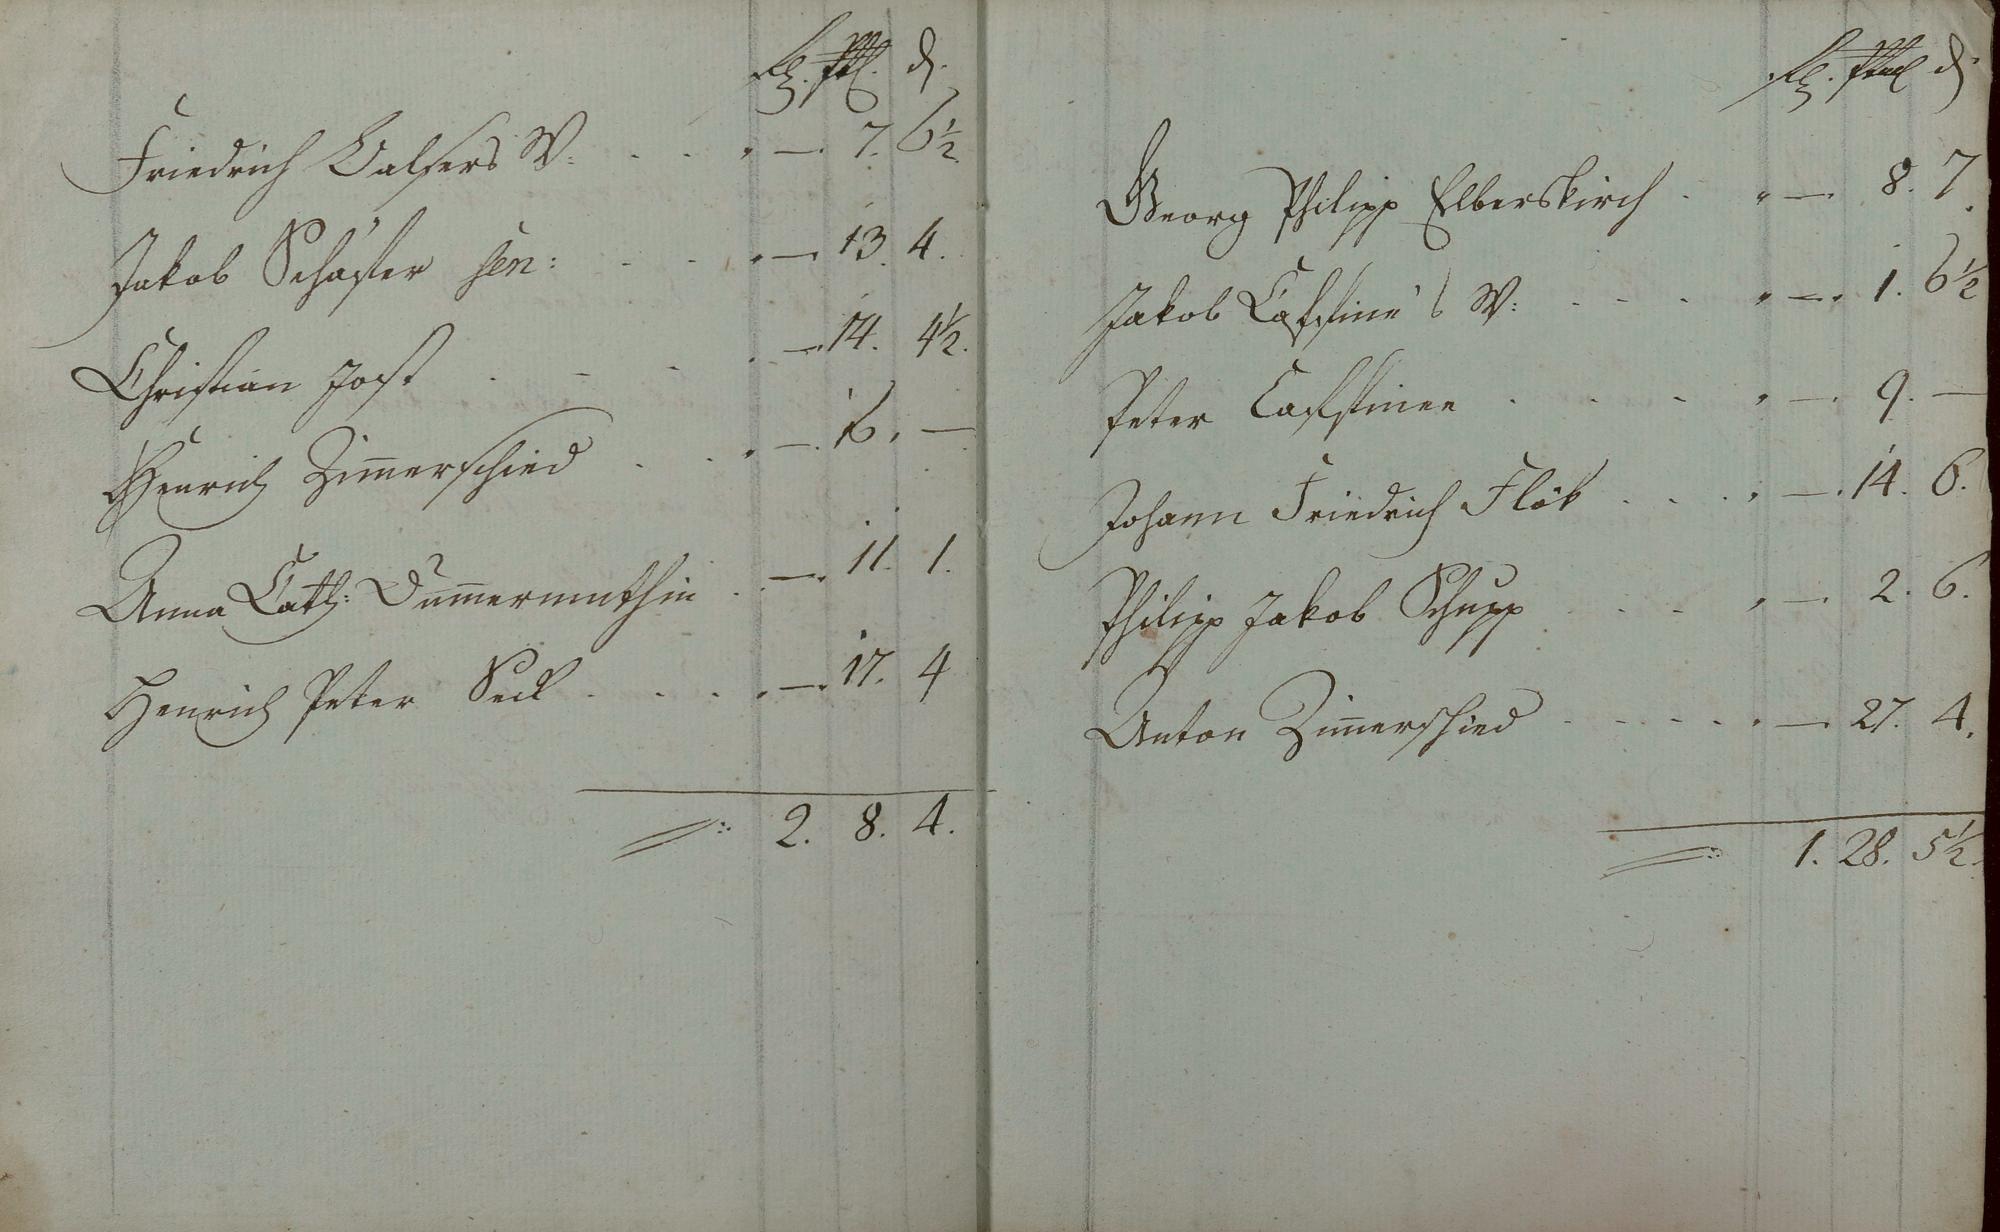 d.
Friedrich Balsers W: . . . " — . 7. 6½
Jakob Schäffer sen: . . . " — . 13. 4.
Christian Jost . . . . — . 14. 4½.
Henrich Zim̄erschied . . . — . 16. —
Anna Cath: Dum̄ermuthin . . — . 11. 1.
Henrich Peter Seck . . . . — . 17. 4
2. 8. 4.
d.
Georg Philipp Elberskirch . " — . 8. 7.
Jakob W: . . . " — . 1. 6½
Peter . . . " — . 9. —
Johann Friedrich Flök . . . " — . 14. 6.
Philipp Jakob Schupp . . . " — . 2. 6.
Anton Zim̄erschied . . . . . " — . 27. 4.
1. 28. 5½.